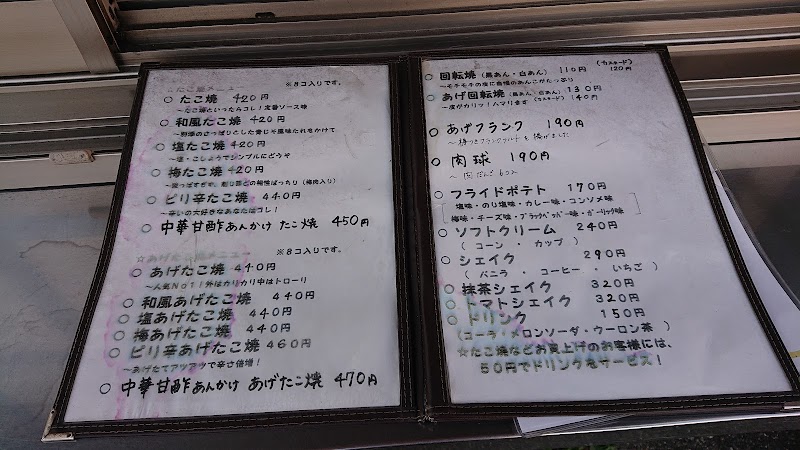 ※8コ入りです。
○ たこ焼 420円
～たこ焼といったらコレ！定番ソース味
○ 和風たこ焼 420円
○ 塩たこ焼 420円
～塩・こしょうでシンプルにどうぞ
○ 梅たこ焼 420円
○ ピリ辛たこ焼 440円
～辛いの大好きなあなたはコレ！
○ 中華甘酢あんかけ たこ焼 450円
※8コ入りです。
☆あげたこ焼メニュー
○ あげたこ焼 440円
～人気No1！外はカリカリ中はトローリ
○ 和風あげたこ焼 440円
○ 塩あげたこ焼 440円
○ 梅あげたこ焼 440円
○ ピリ辛あげたこ焼 460円
～あげたてアツアツで辛さ倍増！
○ 中華甘酢あんかけ あげたこ焼 470円
○ 回転焼 (黒あん・白あん) 110円 (カスタード) 120円
～モチモチの皮に自慢のあんこがたっぷり
○ あげ回転焼 (黒あん・白あん) 130円
～皮がカリッ！ハマります (カスタード) 140円
○ あげフランク 190円
○ 肉球 190円
～肉だんご 6コ入
○ フライドポテト 170円
塩味・のり塩味・カレー味・コンソメ味
梅味・チーズ味・ブラックペッパー味・ガーリック味
○ ソフトクリーム 240円
( コーン ・ カップ )
○ シェイク 290円
( バニラ ・ コーヒー ・ いちご )
○ 抹茶シェイク 320円
○ トマトシェイク 320円
○ ドリンク 150円
(コーラ・メロンソーダ・ウーロン茶 )
☆たこ焼などお買上げのお客様には、
50円でドリンクをサービス！